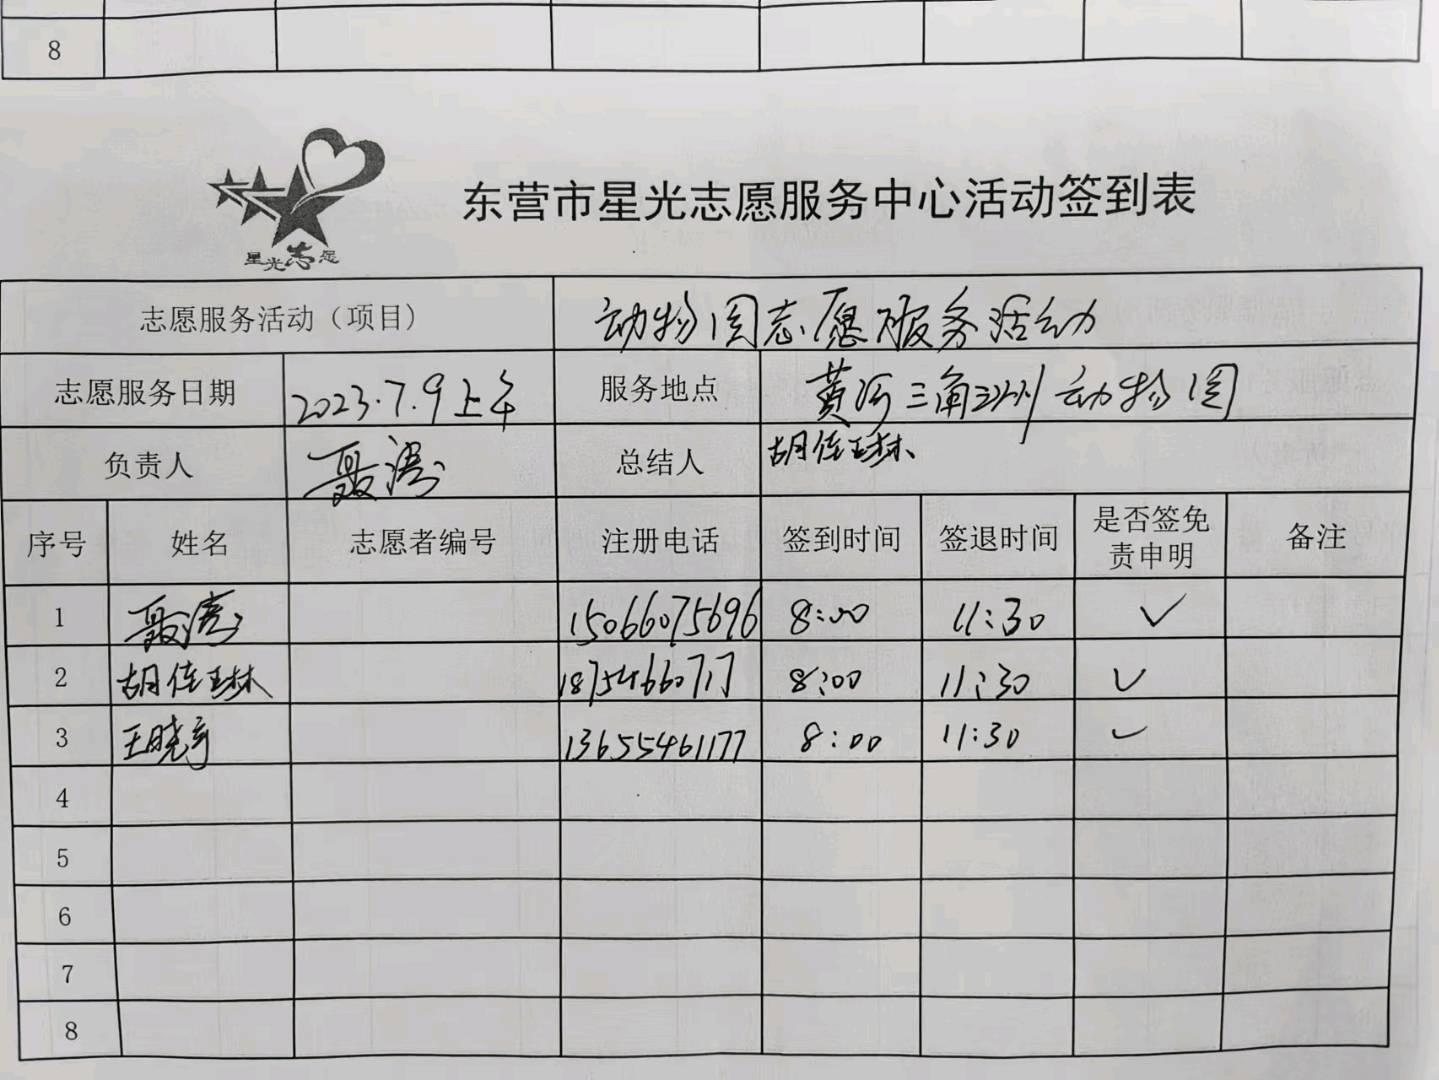 8
星光志愿
东营市星光志愿服务中心活动签到表
志愿服务活动（项目） 动物园志愿服务活动
志愿服务日期 2023.7.9上午 服务地点 黄河三角洲动物园
负责人 聂涛 总结人 胡佳琳
序号 姓名 志愿者编号 注册电话 签到时间 签退时间 是否签免责申明 备注
1 聂涛 15066075696 8:00 11:30 ✓
2 胡佳琳 18754660717 8:00 11:30 ✓
3 王晓彦 13655461177 8:00 11:30 ✓
4
5
6
7
8